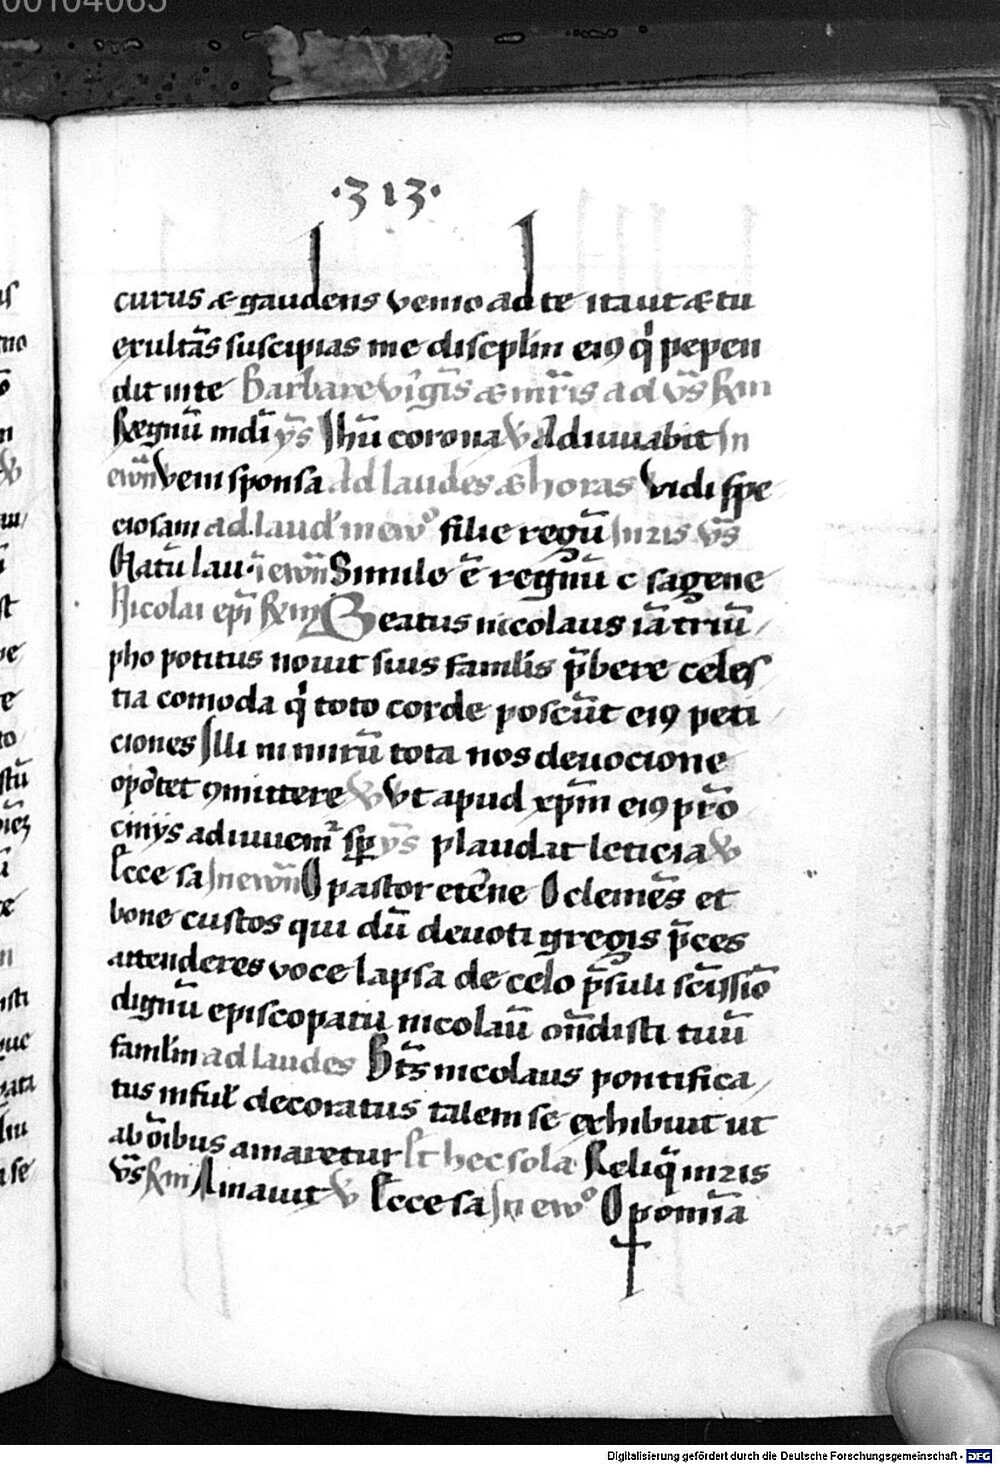 00104065
·313·
curus & gaudens venio ad te ita ut & tu
exultās suscipias me discplīm ei9 q̇ pepen
dit in te Barbare v̄igīs & mr̄is ad v̄s R̄m
Regnū mdī ys̄ Jhū corona V Adiuuabit In
ewn̄ Veni sponsa ad laudes & horas Vidi spe
ciosam ad laud' in ewᵒ filie regū In 2is v̄s
Natū lau· ī ewn̄ Simile ē regnū c sagene
Nicolai epī R̄m Beatus nicolaus iā triū
pho potitus nouit suis famlīs p̄bere celes
tia comoda q̇ toto corde poscūt ei9 peti
ciones Illi nimirū tota nos deuocione
opōtet 9mittere V Vt apud xpm̄ ei9 pr̄o
cinijs adiuuem̄ sp̄ ys̄ plaudat leticia V
Ecce sa In ewn̄ O pastor etērne O clemēs et
bone custos qui dū deuoti gregis p̄ces
attenderes voce lapsa de celo p̄suli sc̄issiō
dignū episcopatu nicolaū on̄disti tuū
famlīm ad laudes Bt̄s nicolaus pontifica
tus inful' decoratus talem se exhibuit ut
ab ōibus amaretur Et hec sola Reliq̄ in 2is
v̄s R̄m Amauit V Ecce sa In ewᵒ O pom̄ia
Digitalisierung gefördert durch die Deutsche Forschungsgemeinschaft - DFG